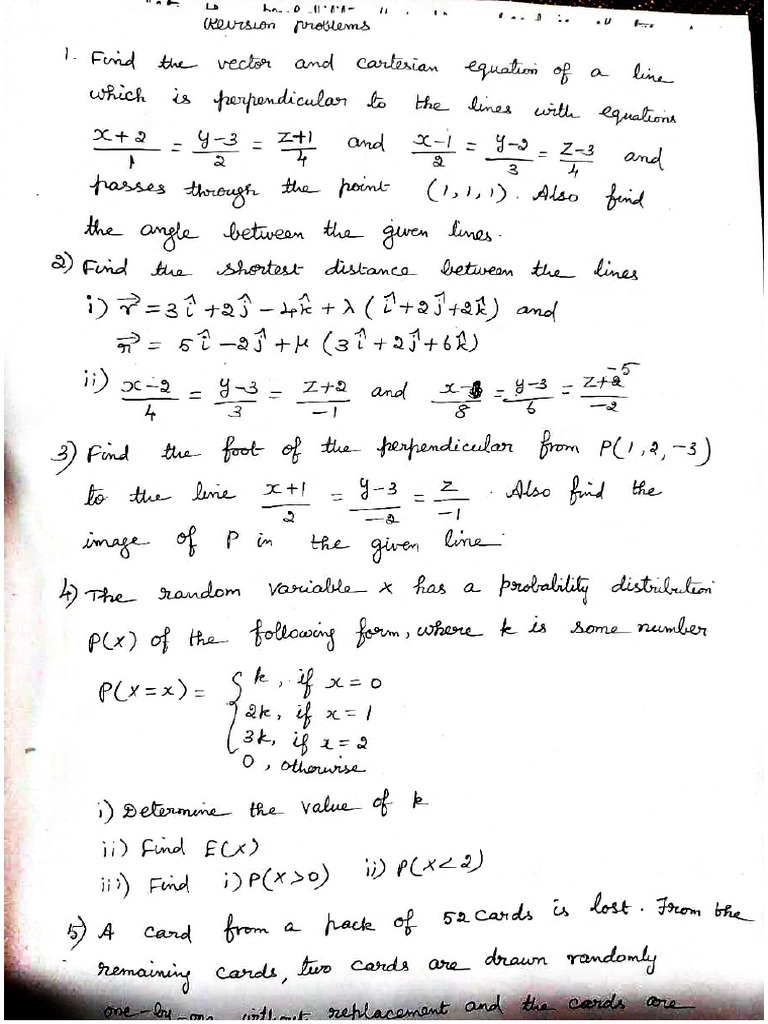 Revision problems
1. Find the vector and cartesian equation of a line
which is perpendicular to the lines with equations
(x+2)/1 = (y-3)/2 = (z+1)/4 and (x-1)/2 = (y-2)/3 = (z-3)/4 and
passes through the point (1,1,1). Also find
the angle between the given lines.
2) Find the shortest distance between the lines
i) r⃗ = 3î+2ĵ-4k̂+λ(î+2ĵ+2k̂) and
r⃗ = 5î-2ĵ+μ(3î+2ĵ+6k̂)
ii) (x-2)/4 = (y-3)/3 = (z+2)/-1 and
3) Find the foot of the perpendicular from P(1,2,-3)
to the line (x+1)/2 = (y-3)/-2 = z/-1. Also find the
image of P in the given line.
4) The random variable x has a probability distribution
P(x) of the following form, where k is some number
P(X=x) = { k, if x=0
2k, if x=1
3k, if x=2
0, otherwise
i) Determine the value of k
ii) Find E(X)
iii) Find i) P(X>0) ii) P(X<2)
5) A card from a pack of 52 cards is lost. From the
remaining cards, two cards are drawn randomly
one-by-one without replacement and the cards are